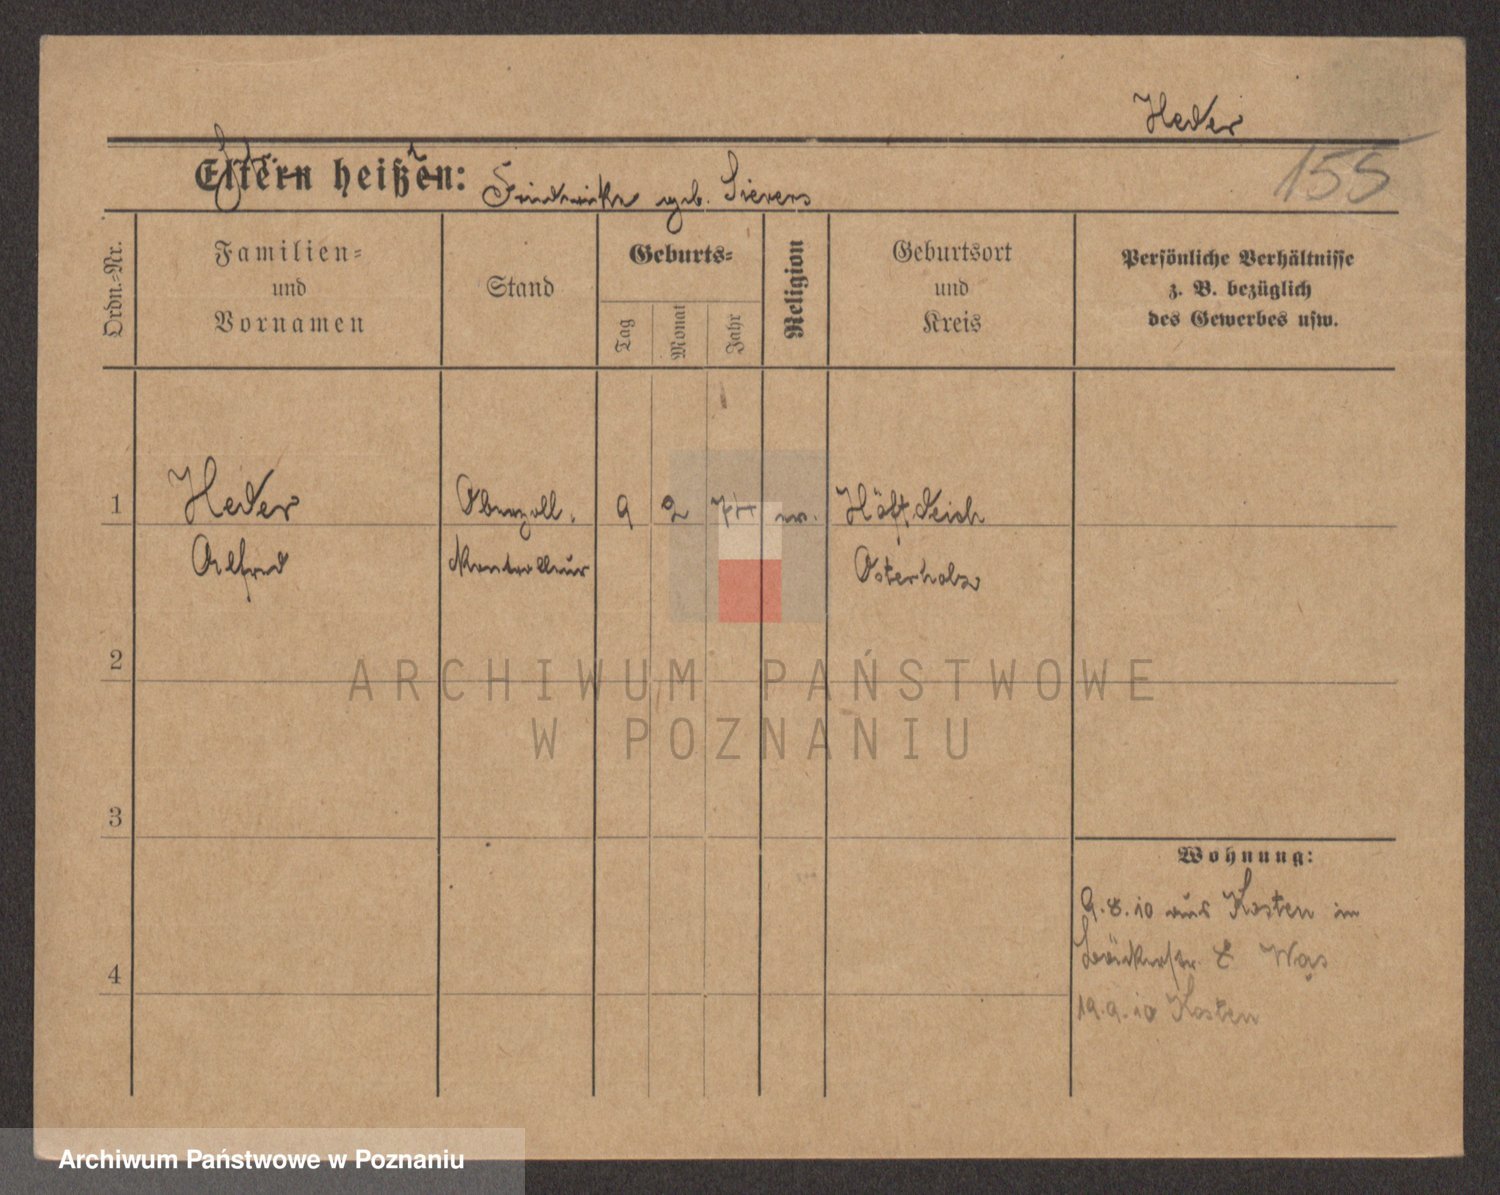 Heder
155
Eltern heißen: Friederike geb. Sievers
Ordn.-Nr.
Familien-
und
Vornamen
Stand
Geburts-
Tag
Monat
Jahr
Religion
Geburtsort
und
Kreis
Persönliche Verhältnisse
z. B. bezüglich
des Gewerbes usw.
1
Heder
Oberzoll.
9
2
ev.
Höftdeich
Alfred
Kontrolleur
Osterholz
2
3
4
Wohnung:
9.8.10 aus Kosten in
8
19.9.10 Kosten
ARCHIWUM PAŃSTWOWE
W POZNANIU
Archiwum Państwowe w Poznaniu